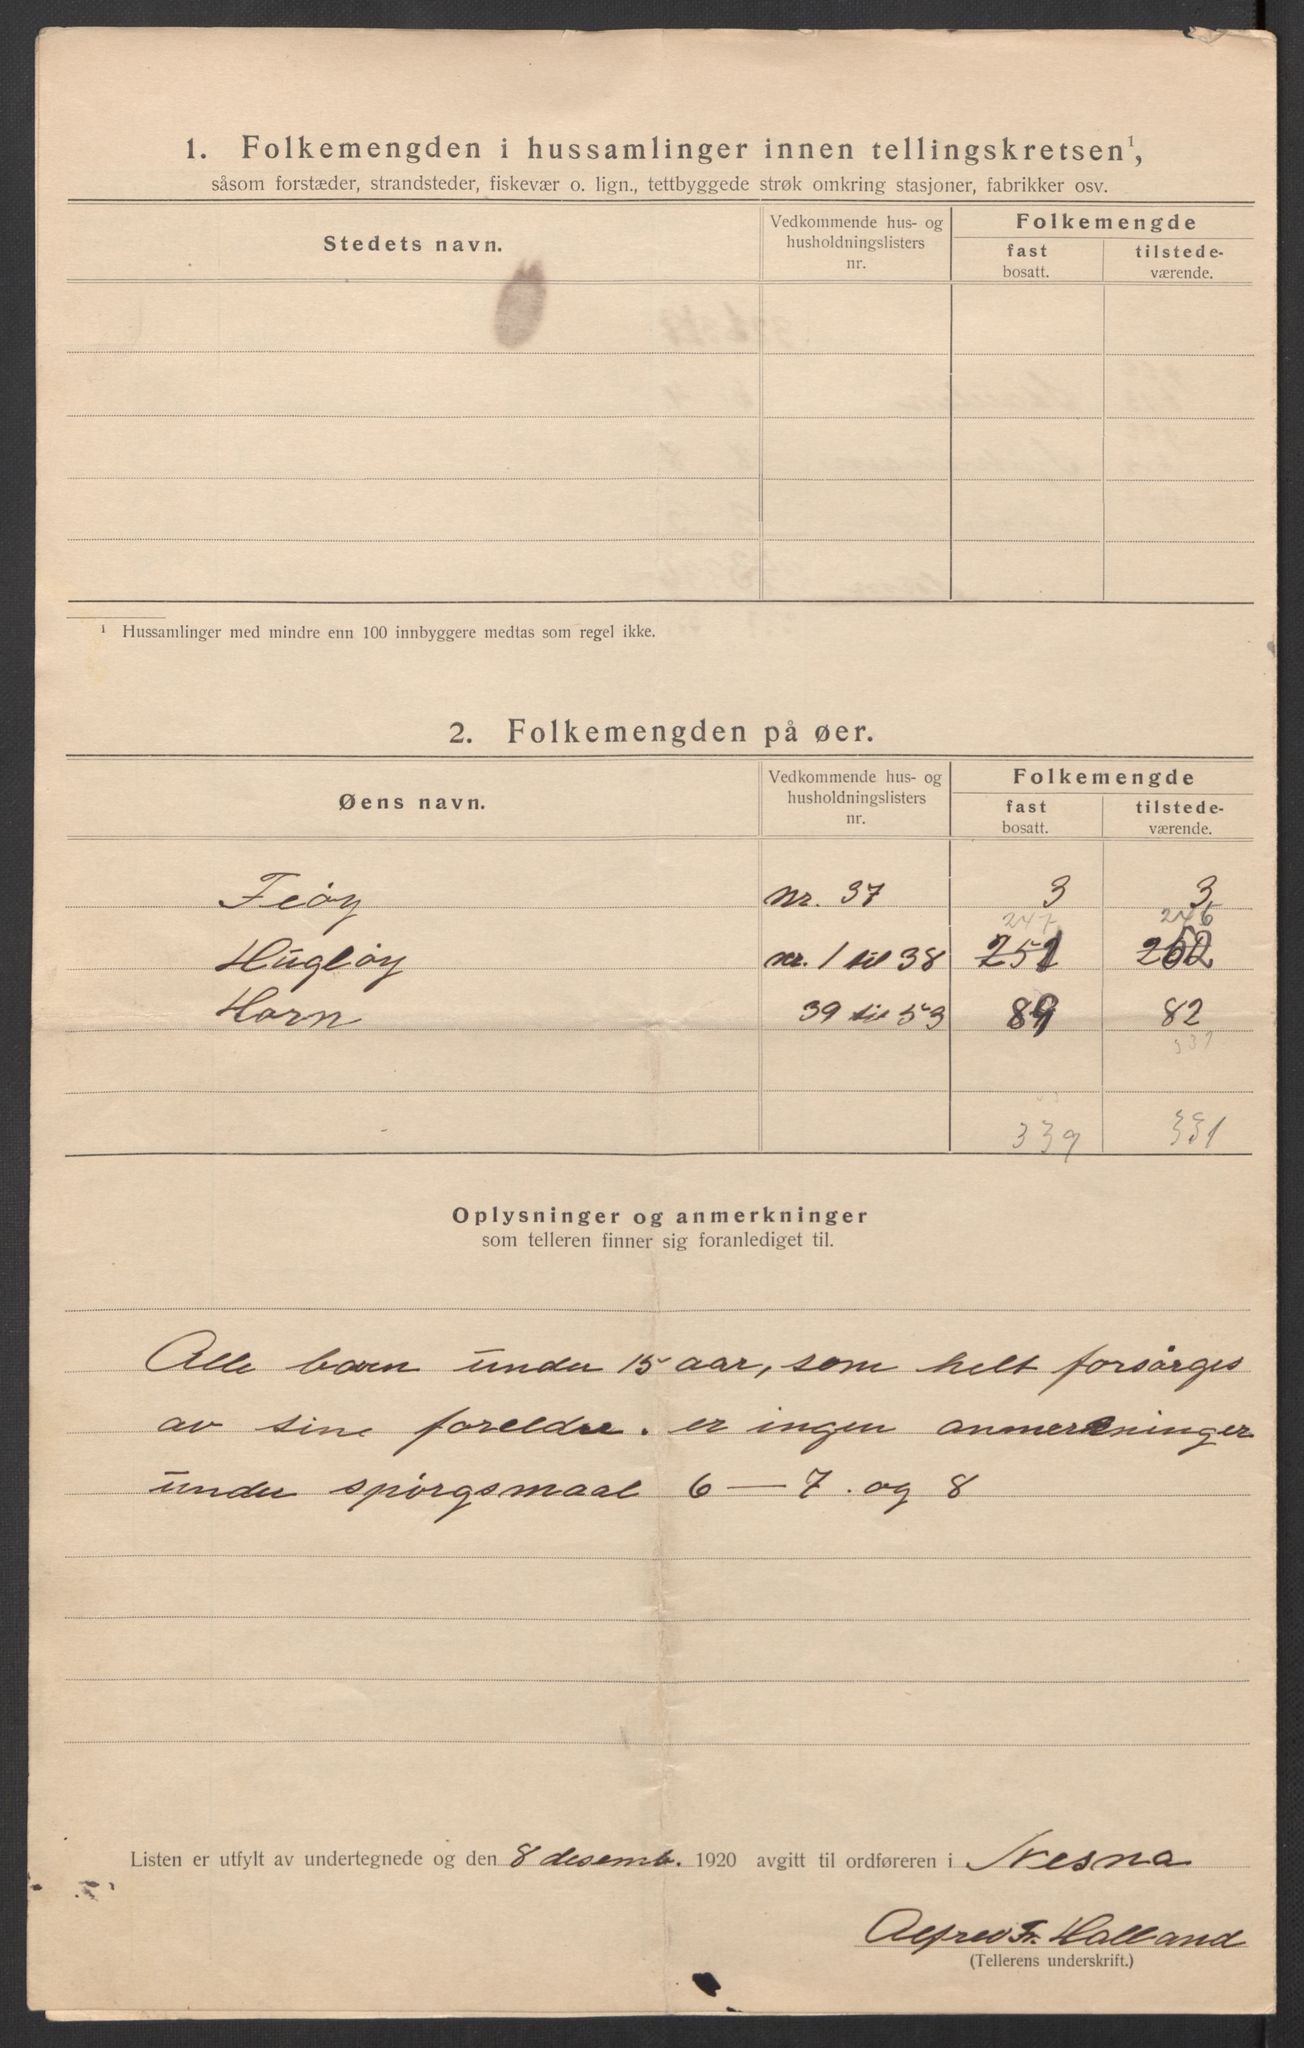 1. Folkemengden i hussamlinger innen tellingskretsen¹,
såsom forstæder, strandsteder, fiskevær o. lign., tettbyggede strøk omkring stasjoner, fabrikker osv.
Stedets navn.
Vedkommende hus- og
husholdningslisters
nr.
Folkemengde
fast
bosatt.
tilstede-
værende.
¹ Hussamlinger med mindre enn 100 innbyggere medtas som regel ikke.
2. Folkemengden på øer.
Øens navn.
Vedkommende hus- og
husholdningslisters
nr.
Folkemengde
fast
bosatt.
tilstede-
værende.
Feöy nr. 37 3 3
247 246
Hugløy nr. 1 til 38 251 252
Horn 39 til 53 89 82
331
339 331
Oplysninger og anmerkninger
som telleren finner sig foranlediget til.
Alle barn under 15 aar, som helt forsörges
av sine foreldre. er ingen anmerkninger
under spörgsmaal 6 — 7. og 8
Listen er utfylt av undertegnede og den 8 desemb. 1920 avgitt til ordføreren i Nesna
Alfred Fr. Halland
(Tellerens underskrift.)